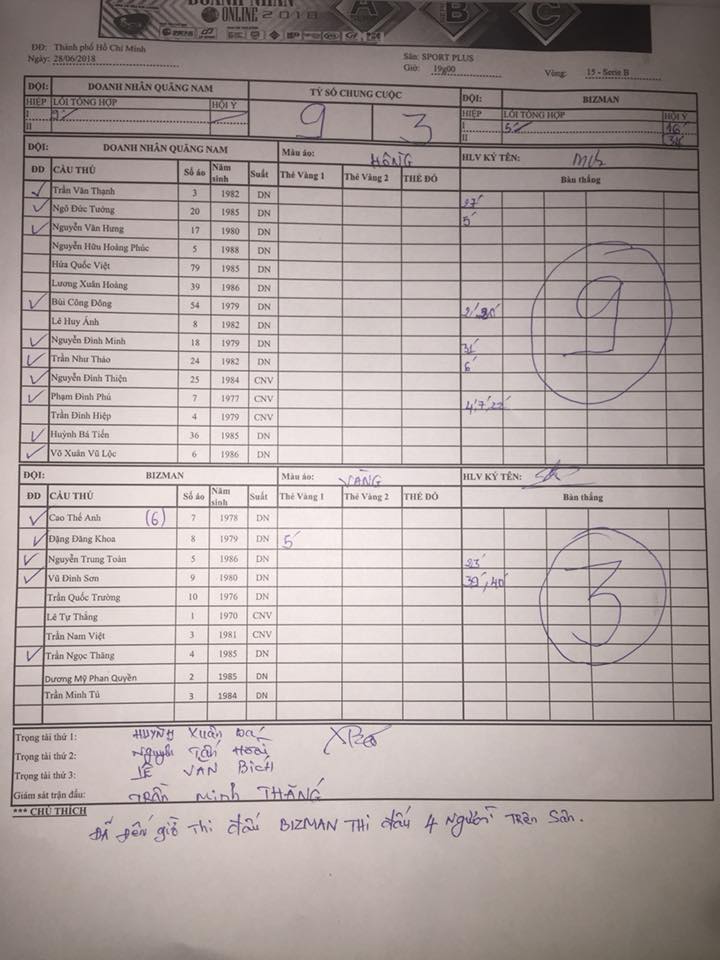 DOANH NHÂN
ONLINE 2018
A B C
ĐĐ: Thành phố Hồ Chí Minh
Ngày: 28/06/2018
Sân: SPORT PLUS
Giờ: 19g00
Vòng: 15 - Serie B
ĐỘI: DOANH NHÂN QUẢNG NAM TỶ SỐ CHUNG CUỘC ĐỘI: BIZMAN
HIỆP LỖI TỔNG HỢP HỘI Ý 9 3 HIỆP LỖI TỔNG HỢP HỘI Ý
I I 5' 16'
II II
ĐỘI: DOANH NHÂN QUẢNG NAM Màu áo: HỒNG HLV KÝ TÊN:
ĐD CẦU THỦ Số áo Năm sinh Suất Thẻ Vàng 1 Thẻ Vàng 2 THẺ ĐỎ Bàn thắng
Trần Văn Thạnh 3 1982 DN
Ngô Đức Tường 20 1985 DN 27'
Nguyễn Văn Hưng 17 1980 DN 5'
Nguyễn Hữu Hoàng Phúc 5 1988 DN
Hứa Quốc Việt 79 1985 DN
Lương Xuân Hoàng 39 1986 DN
Bùi Công Đông 54 1979 DN 2'
Lê Huy Ánh 8 1982 DN
Nguyễn Đình Minh 18 1979 DN 31'
Trần Như Thảo 24 1982 DN 6'
Nguyễn Đình Thiện 25 1984 CNV
Phạm Đình Phú 7 1977 CNV 4' 7' 22'
Trần Đình Hiệp 4 1979 CNV
Huỳnh Bá Tiến 36 1985 DN
Võ Xuân Vũ Lộc 6 1986 DN
9
ĐỘI: BIZMAN Màu áo: VÀNG HLV KÝ TÊN:
ĐD CẦU THỦ Số áo Năm sinh Suất Thẻ Vàng 1 Thẻ Vàng 2 THẺ ĐỎ Bàn thắng
Cao Thế Anh (6) 7 1978 DN
Đặng Đăng Khoa 8 1979 DN 5'
Nguyễn Trung Toàn 5 1986 DN 23'
Vũ Đình Sơn 9 1980 DN 39', 40'
Trần Quốc Trường 10 1976 DN
Lê Tự Thắng 1 1970 CNV
Trần Nam Việt 3 1981 CNV
Trần Ngọc Thăng 4 1985 DN
Dương Mỹ Phan Quyền 2 1985 DN
Trần Minh Tú 3 1984 DN
3
Trọng tài thứ 1: HUỲNH Xuân
Trọng tài thứ 2: Nguyễn Tấn Hoài
Trọng tài thứ 3: LÊ VAN BÍCH
Giám sát trận đấu: TRẦN MINH THẮNG
*** CHÚ THÍCH
ĐÃ ĐẾN giờ Thi đấu BIZMAN THi đấu 4 NGƯỜI TRÊN SÂN.